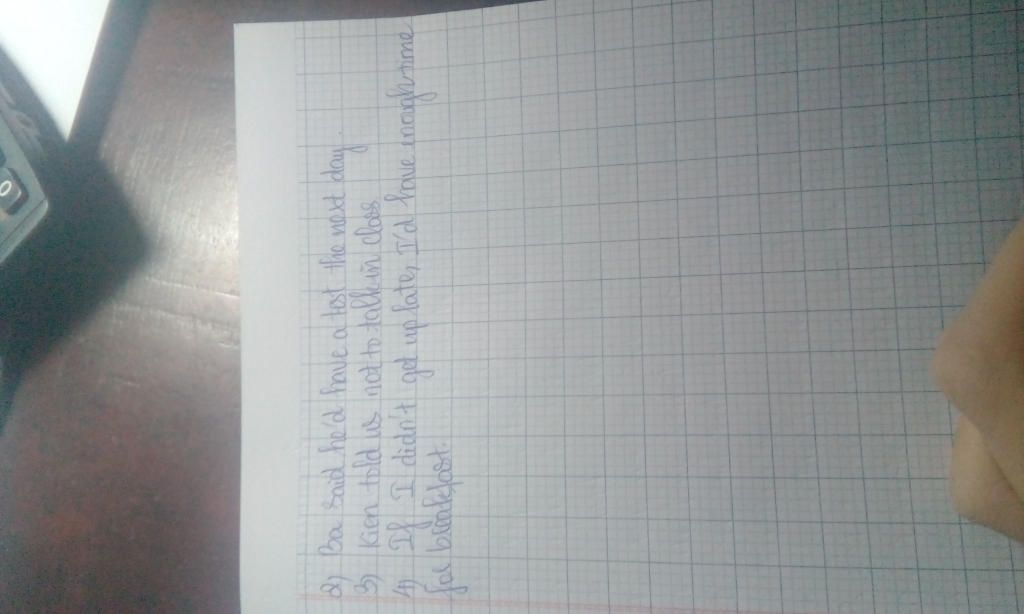 2) Ba said he'd have a test the next day.
3) Kien told us not to talk in class
4) If I didn't get up late, I'd have enough time
for breakfast.
0